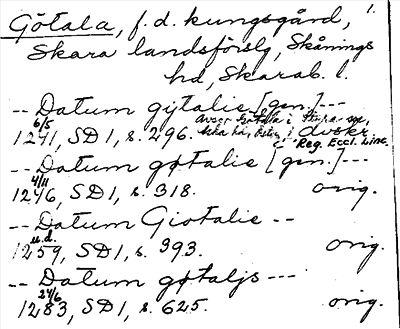 Götala, f. d. kungsgård, 1.
Skara landsförslg, Skånings
hd, Skarab. l.
-- Datum gøtalie [gen.] ---
6/5
1241, SD 1, s. 296. avskr.
c Reg. Eccl. Linc.
-- Datum gøtalie [gen.] ---
4/11
1246, SD 1, s. 318. orig.
-- Datum Giotalie --
u.d.
1259, SD 1, s. 393. orig.
-- Datum gøtaljs ---
24/6
1283, SD 1, s. 625. orig.